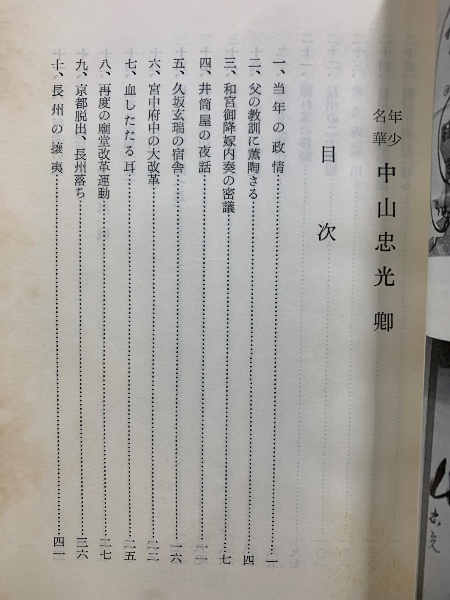 年少名華 中山忠光卿
目次
一、当年の政情……一
二、父の教訓に薫陶さる……四
三、和宮御降嫁内奏の密議……七
四、井筒屋の夜話……一二
五、久坂玄瑞の宿舎……一六
六、宮中府中の大改革……二二
七、血したたる耳……二五
八、再度の廟堂改革運動……二七
九、京都脱出、長州落ち……三六
十、長州の攘夷……四一